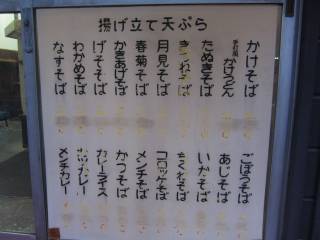 揚げ立て天ぷら
かけそば
かけうどん
たぬきそば
月見そば
春菊そば
かきあげそば
げそそば
わかめそば
なすそば
ごぼうそば
あじそば
いかそば
ちくわそば
コロッケそば
メンチそば
かつそば
カレーライス
カレー
メンチカレー